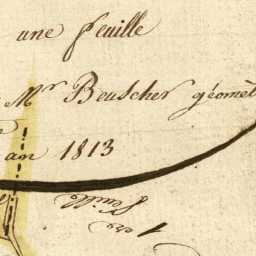 une feuille
Mr Beuscher géomèt
an 1813
1ere feuille